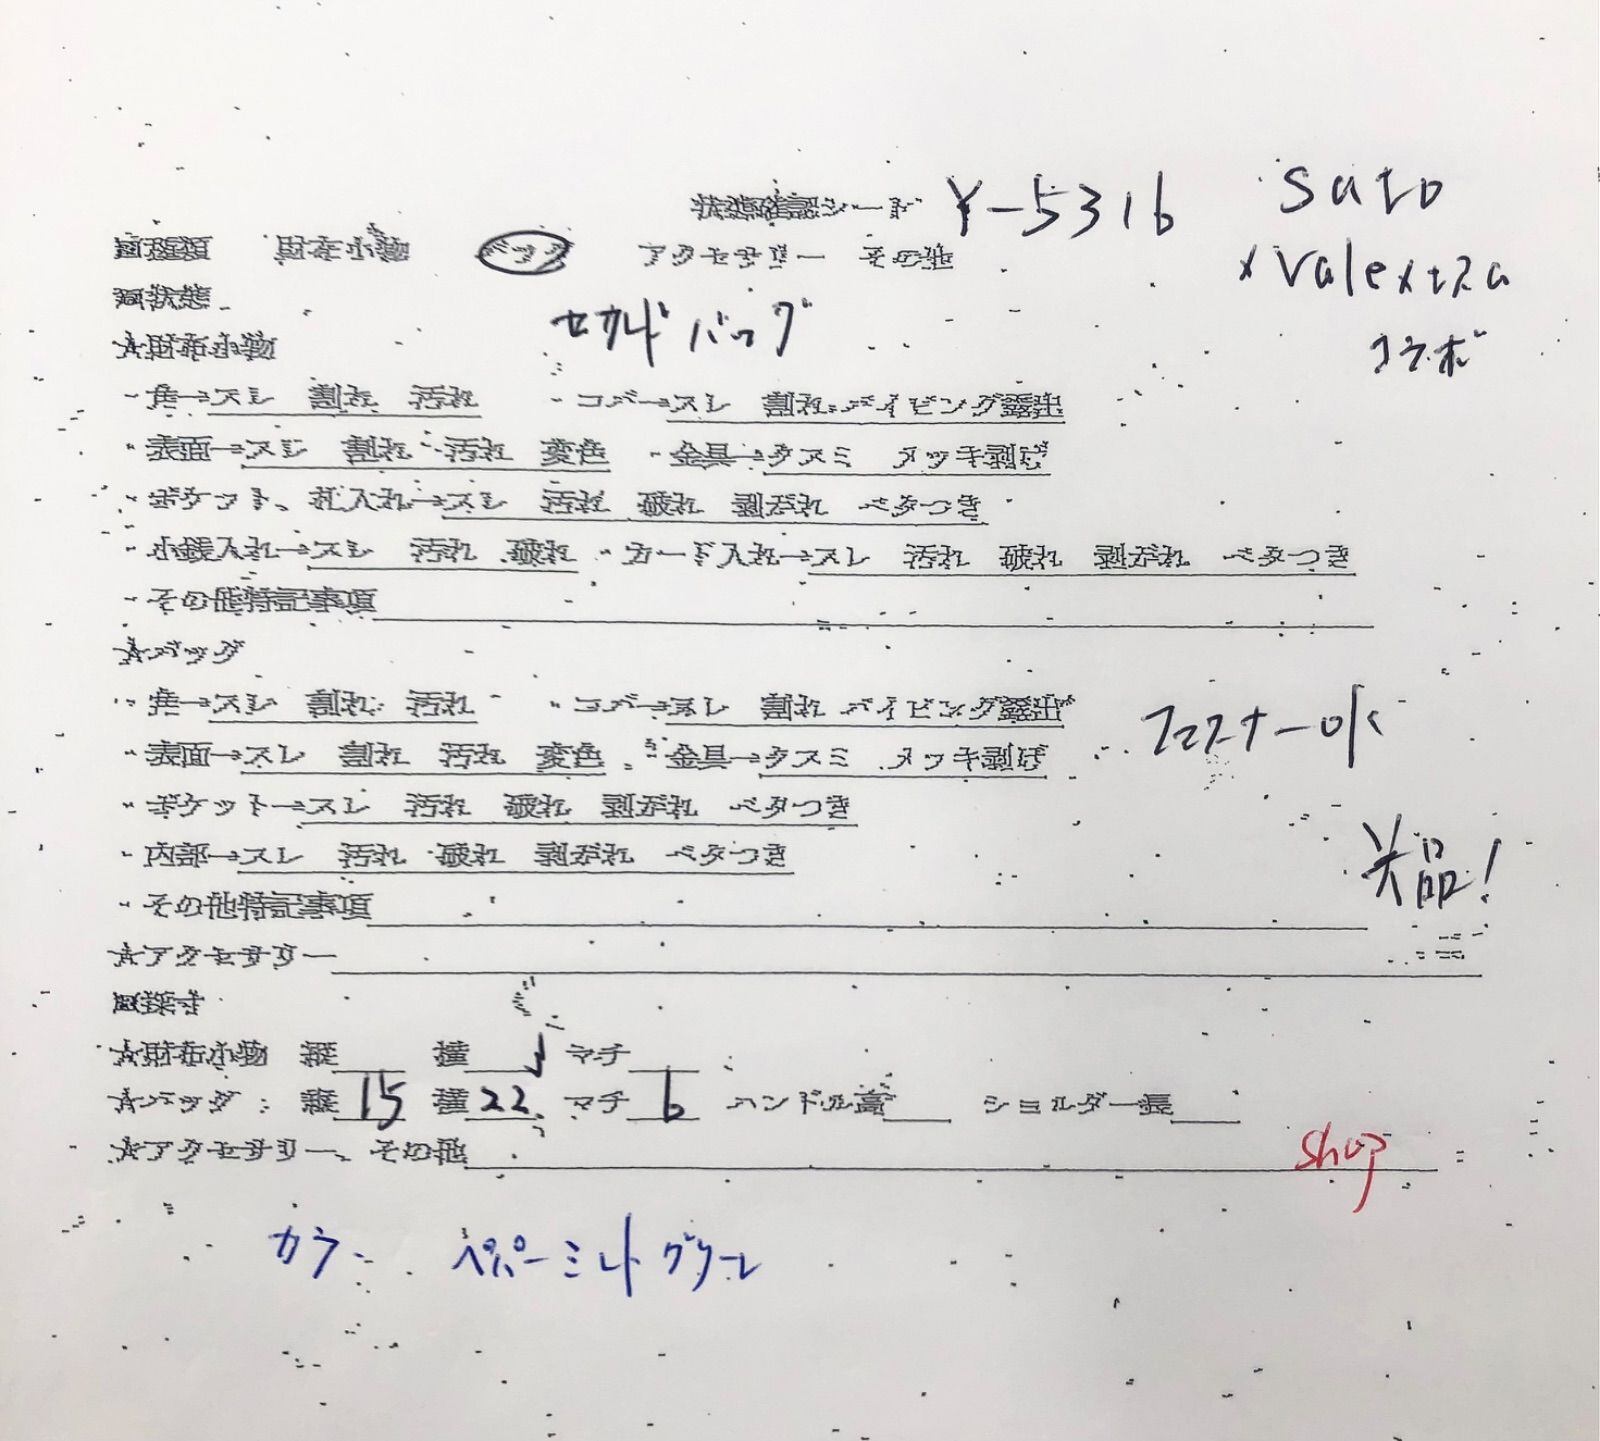 状態確認シート Y-5316 sato
■種類 財布小物 バッグ アクセサリー その他 ×Valextra
■状態 セカンドバッグ コラボ
★財布小物
・角→スレ 割れ 汚れ ・コバ→スレ 割れ パイピング露出
・表面→スレ 割れ 汚れ 変色 ・金具→クスミ メッキ剥げ
・ポケット、札入れ→スレ 汚れ 破れ 剥がれ ベタつき
・小銭入れ→スレ 汚れ 破れ ・カード入れ→スレ 汚れ 破れ 剥がれ ベタつき
・その他特記事項
★バッグ
・角→スレ 割れ 汚れ ・コバ→スレ 割れ パイピング露出
・表面→スレ 割れ 汚れ 変色 ・金具→クスミ メッキ剥げ ファスナーok
・ポケット→スレ 汚れ 破れ 剥がれ ベタつき
・内部→スレ 汚れ 破れ 剥がれ ベタつき 美品!
・その他特記事項
★アクセサリー
■採寸
★財布小物 縦 横 マチ
★バッグ: 縦 15 横 22 マチ 6 ハンドル高 ショルダー長
★アクセサリー、その他 shop
カラー ペパーミントグリーン